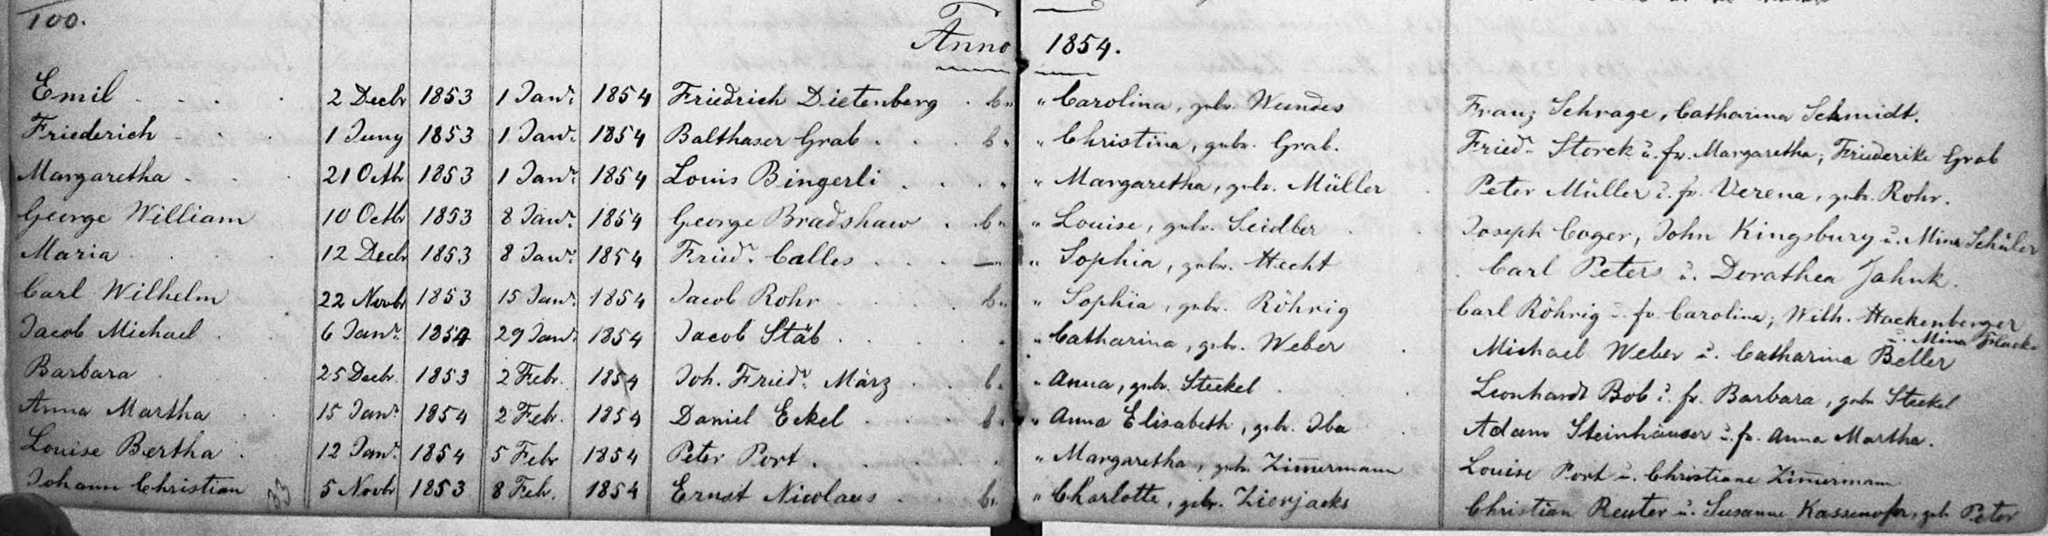 100.
Anno 1854.
Emil 2 Decbr 1853 1 Janr. 1854 Friedrich Dietenberg " Carolina, gebr. Wendes Franz Schrage, Catharina Schmidt.
Friederich 1 Juny 1853 1 Janr. 1854 Balthaser Grab " Christina, gebr. Grab. Friedr. Storck u. fr. Margaretha; Friederike Grab
Margaretha 21 Octbr 1853 1 Janr. 1854 Louis Bingerli " Margaretha, gebr. Müller Peter Müller u. fr. Verena, geb. Rohr.
George William 10 Octbr 1853 8 Janr. 1854 George Bradshaw " Louise, gebr. Seidler Joseph Coger, John Kingsbury u. Mina Schüler
Maria 12 Decbr 1853 8 Janr. 1854 Friedr. Calles " Sophia, gebr. Hecht Carl Peters u. Dorathea Jahnk.
Carl Wilhelm 22 Novbr 1853 15 Janr. 1854 Jacob Rohr " Sophia, gebr. Röhrig Carl Röhrig u. fr. Carolina; Wilh. Hackenberger
u. Mina
Jacob Michael 6 Janr. 1854 29 Janr. 1854 Jacob Stäb " Catharina, geb. Weber Michael Weber u. Catharina Beller
Barbara 25 Decbr. 1853 2 Febr. 1854 Joh. Friedr. März " Anna, gebr. Steckel Leonhardt Bob u. fr. Barbara, gebr Steckel
Anna Martha 15 Janr. 1854 2 Febr. 1854 Daniel Eckel " Anna Elisabeth, geb. Iba Adam Steinhäuser u. fr. Anna Martha.
Louise Bertha 12 Janr. 1854 5 Febr 1854 Peter Port " Margaretha, geb. Zimmermann Louise Port u. Christiane Zimmermann
Johann Christian 33 5 Novbr 1853 8 Febr. 1854 Ernst Nicolaus " Charlotte, gebr. Zierjacks Christian Reuter u. Susanne geb. Peter